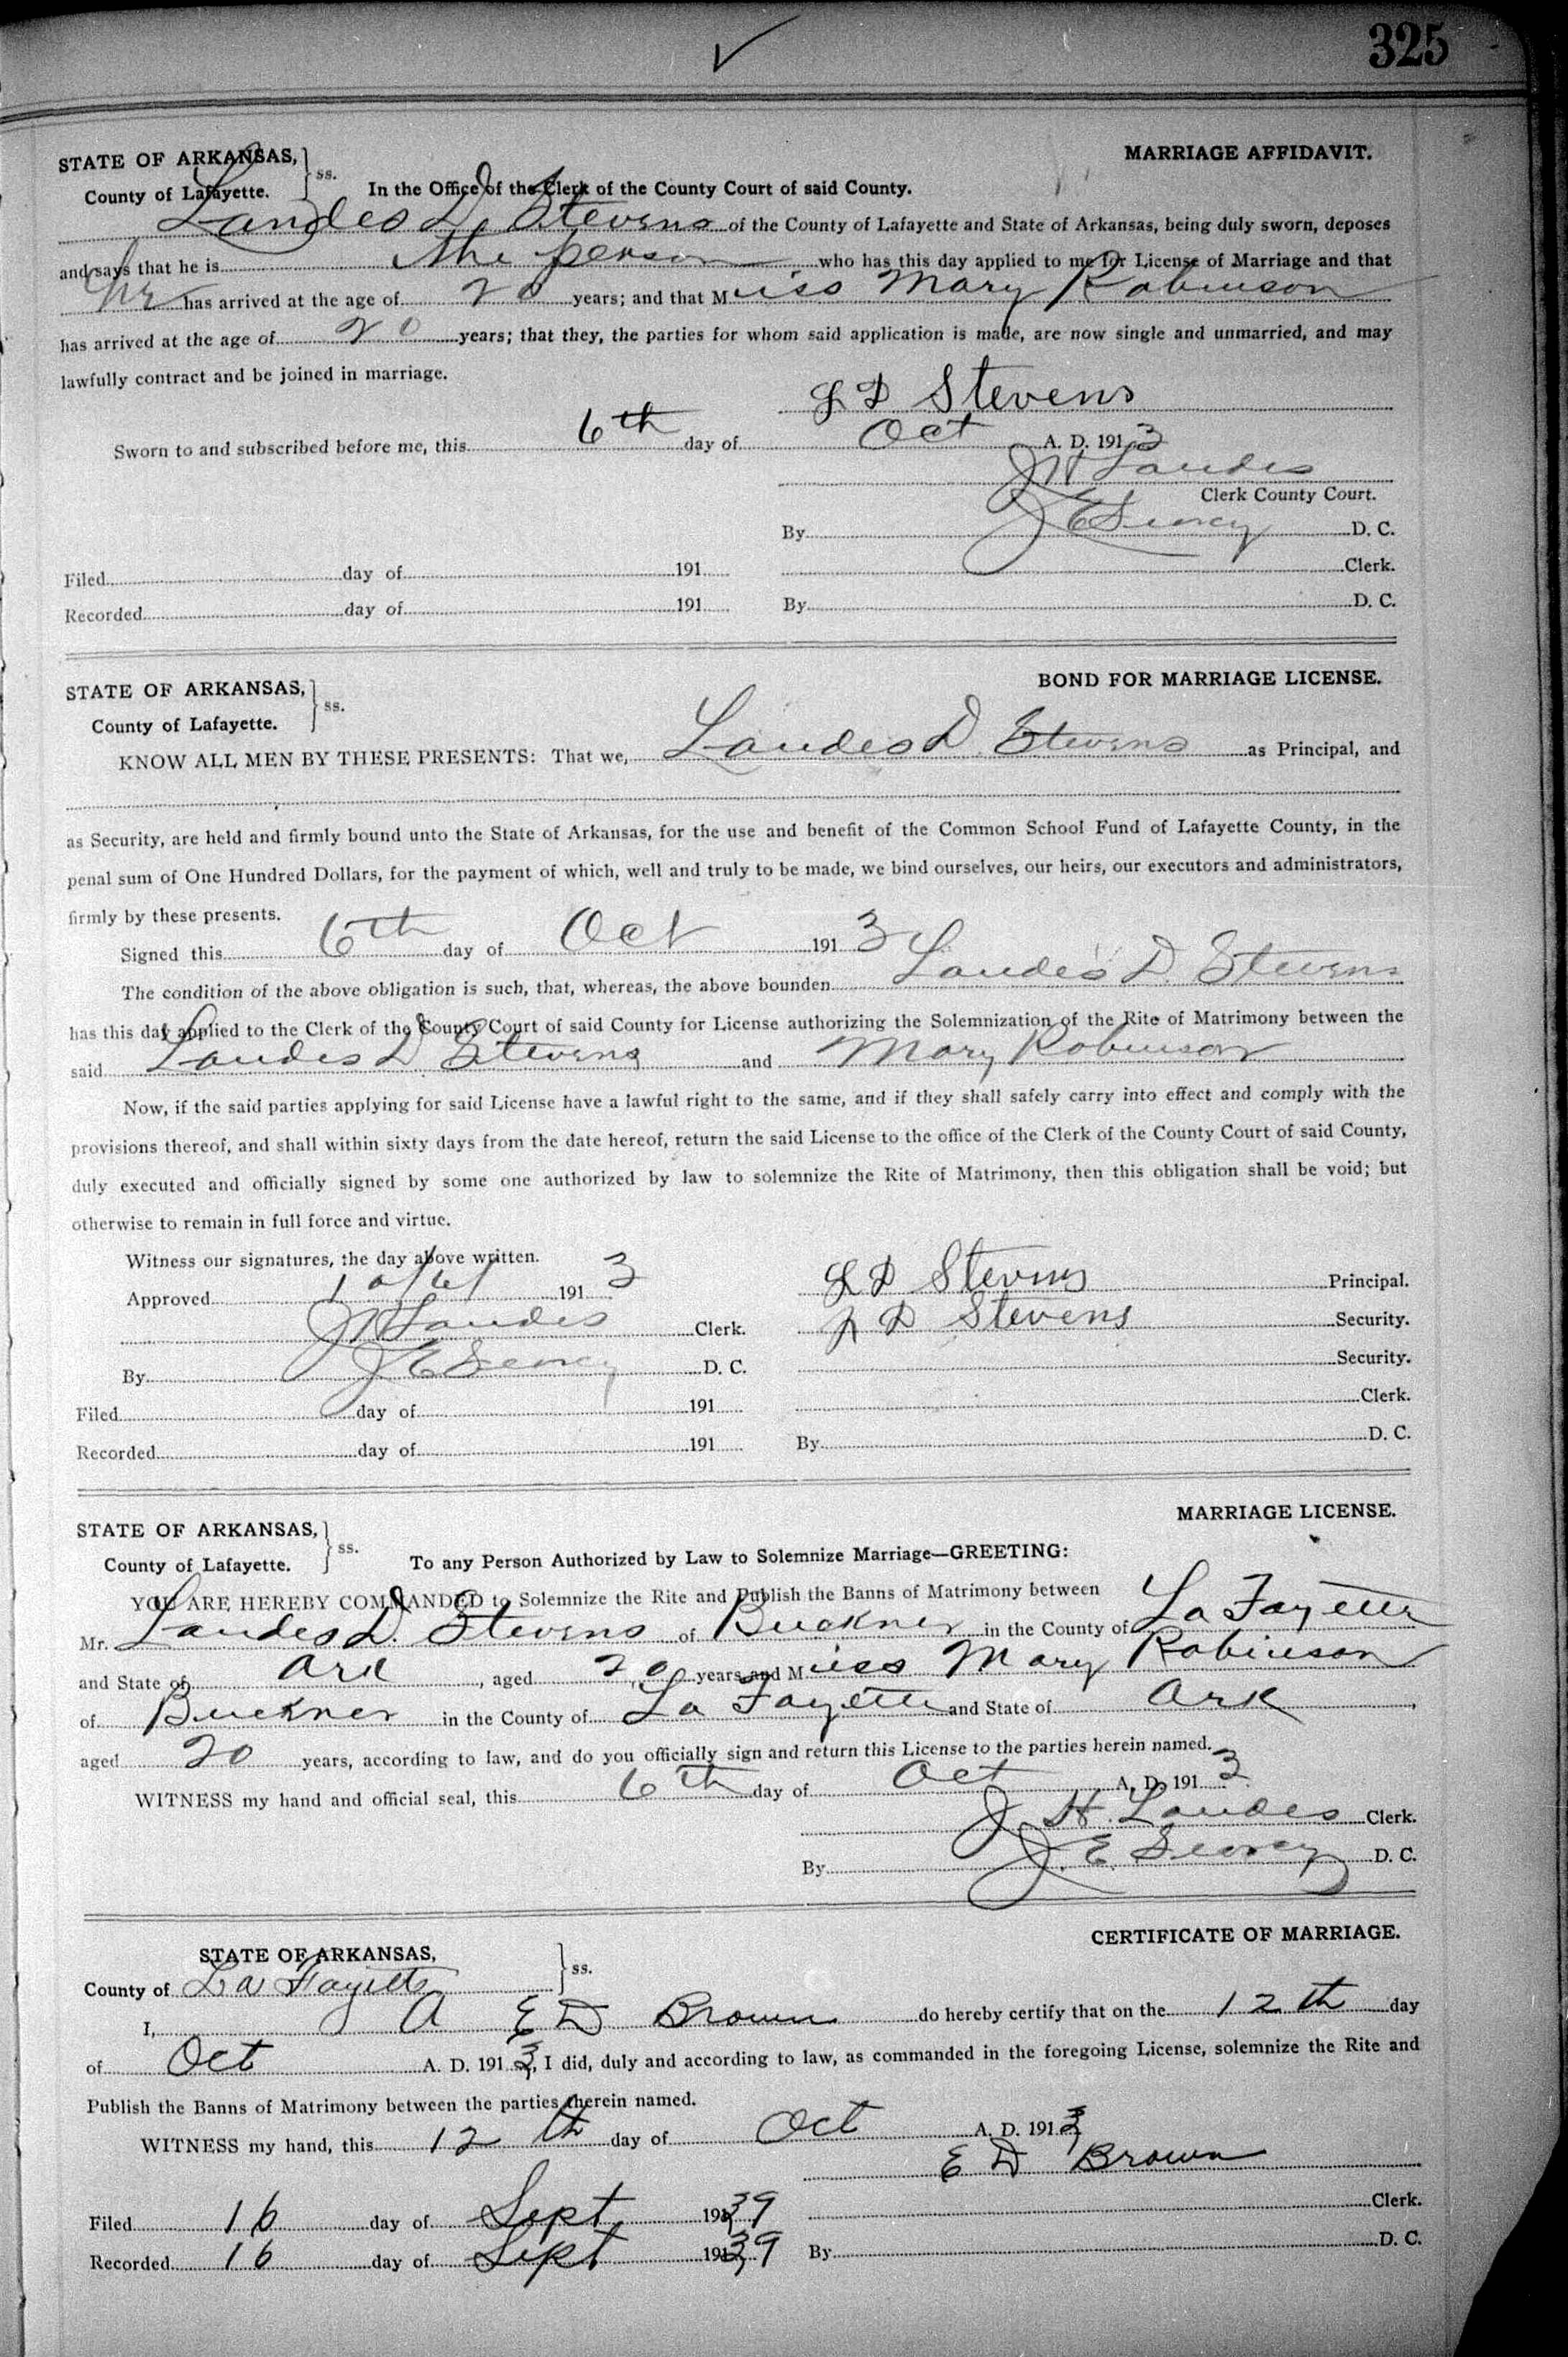 325
STATE OF ARKANSAS,
County of Lafayette.
ss.
MARRIAGE AFFIDAVIT.
In the Office of the Clerk of the County Court of said County.
Landes D. Stevens of the County of Lafayette and State of Arkansas, being duly sworn, deposes
and says that he is the person who has this day applied to me for License of Marriage and that
he has arrived at the age of 20 years; and that Miss Mary Robinson
has arrived at the age of 20 years; that they, the parties for whom said application is made, are now single and unmarried, and may
lawfully contract and be joined in marriage.
L D Stevens
Sworn to and subscribed before me, this 6th day of Oct A. D. 1913
J H Landes
Clerk County Court.
By J E Searcy D. C.
Filed day of 191 Clerk.
Recorded day of 191 By D. C.
STATE OF ARKANSAS,
County of Lafayette.
ss.
BOND FOR MARRIAGE LICENSE.
KNOW ALL MEN BY THESE PRESENTS: That we, Landes D Stevens as Principal, and
as Security, are held and firmly bound unto the State of Arkansas, for the use and benefit of the Common School Fund of Lafayette County, in the
penal sum of One Hundred Dollars, for the payment of which, well and truly to be made, we bind ourselves, our heirs, our executors and administrators,
firmly by these presents.
Signed this 6th day of Oct 1913
The condition of the above obligation is such, that, whereas, the above bounden Landes D. Stevens
has this day applied to the Clerk of the County Court of said County for License authorizing the Solemnization of the Rite of Matrimony between the
said Landes D Stevens and Mary Robinson
Now, if the said parties applying for said License have a lawful right to the same, and if they shall safely carry into effect and comply with the
provisions thereof, and shall within sixty days from the date hereof, return the said License to the office of the Clerk of the County Court of said County,
duly executed and officially signed by some one authorized by law to solemnize the Rite of Matrimony, then this obligation shall be void; but
otherwise to remain in full force and virtue.
Witness our signatures, the day above written.
Approved 10/6/ 1913 L D Stevens Principal.
J H Landes Clerk. D Stevens Security.
By J E Searcy D. C. Security.
Filed day of 191 Clerk.
Recorded day of 191 By D. C.
STATE OF ARKANSAS,
County of Lafayette.
ss.
MARRIAGE LICENSE.
To any Person Authorized by Law to Solemnize Marriage—GREETING:
YOU ARE HEREBY COMMANDED to Solemnize the Rite and Publish the Banns of Matrimony between
Mr. Landes D. Stevens of Buckner in the County of La Fayette
and State of Ark, aged 20 years and Miss Mary Robinson
of Buckner in the County of La Fayette and State of Ark,
aged 20 years, according to law, and do you officially sign and return this License to the parties herein named.
WITNESS my hand and official seal, this 6th day of Oct A. D. 1913
J. H. Landes Clerk.
By J. E. Searcy D. C.
CERTIFICATE OF MARRIAGE.
STATE OF ARKANSAS,
County of La Fayette
ss.
I, A E D Brown do hereby certify that on the 12th day
of Oct A. D. 1913, I did, duly and according to law, as commanded in the foregoing License, solemnize the Rite and
Publish the Banns of Matrimony between the parties therein named.
WITNESS my hand, this 12th day of Oct A. D. 1913
E D Brown
Filed 16 day of Sept 1939 Clerk.
Recorded 16 day of Sept 1939 By D. C.